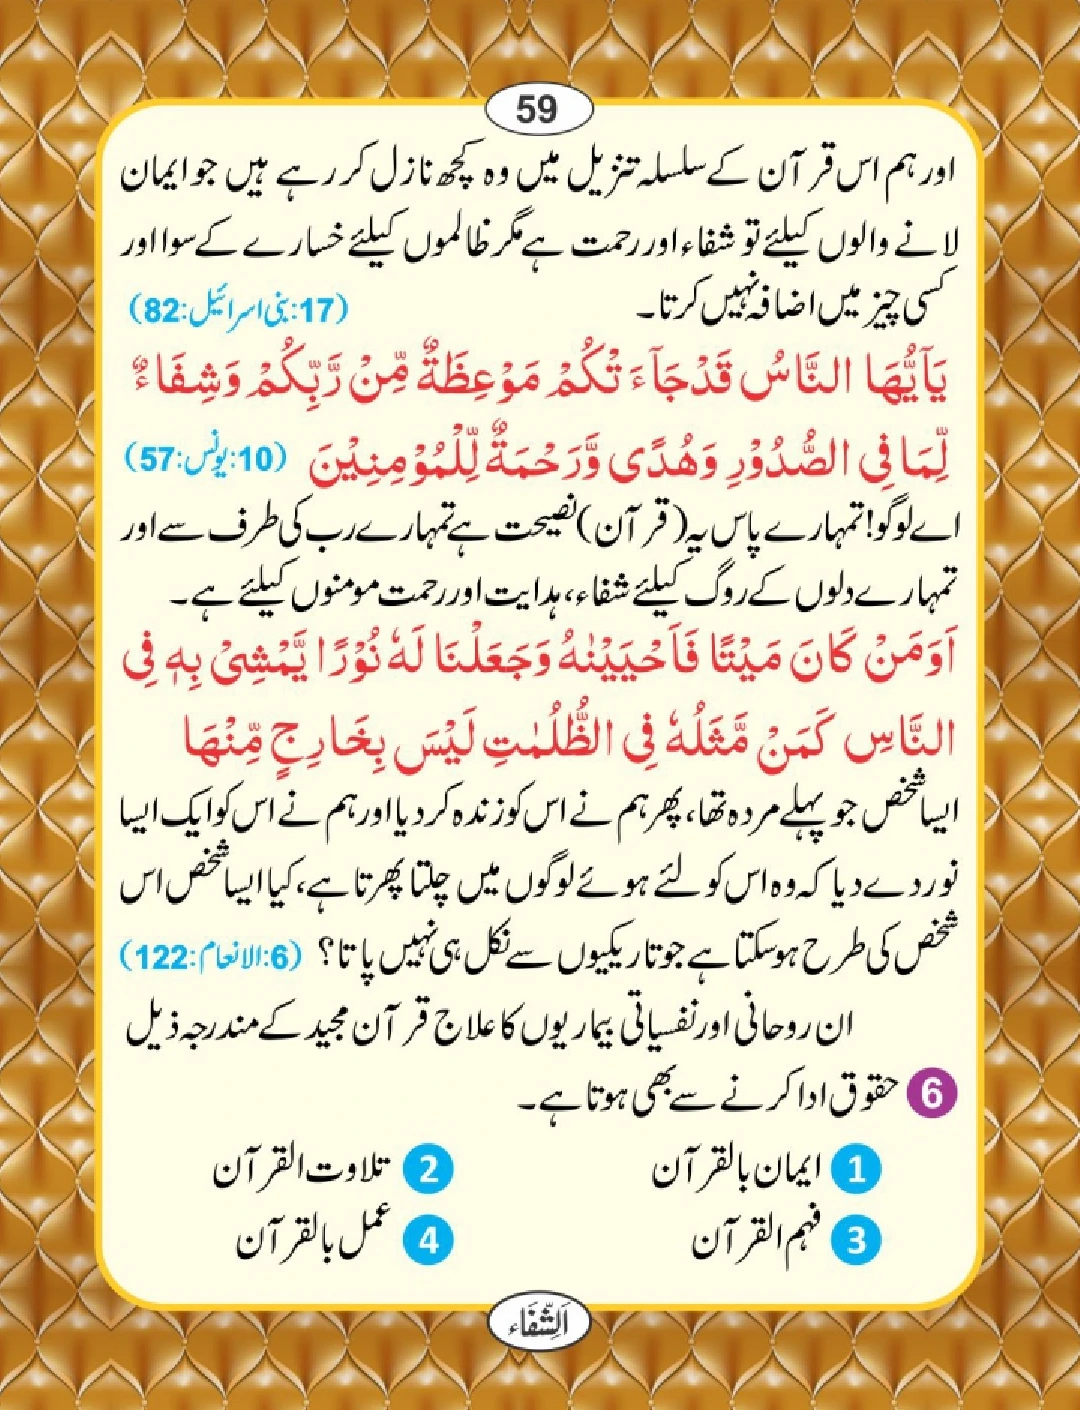 59
اور ہم اس قرآن کے سلسلہ تنزیل میں وہ کچھ نازل کر رہے ہیں جو ایمان
لانے والوں کیلئے تو شفاء اور رحمت ہے مگر ظالموں کیلئے خسارے کے سوا اور
کسی چیز میں اضافہ نہیں کرتا۔ (17:بنی اسرائیل:82)
يَآيُّهَا النَّاسُ قَدْ جَآءَ تْكُمْ مَوْعِظَةٌ مِّنْ رَّبِّكُمْ وَشِفَاءٌ
لِّمَا فِى الصُّدُوْرِ وَهُدًى وَّرَحْمَةٌ لِّلْمُوْمِنِيْنَ (10:یونس:57)
اے لوگو! تمہارے پاس یہ (قرآن) نصیحت ہے تمہارے رب کی طرف سے اور
تمہارے دلوں کے روگ کیلئے شفاء، ہدایت اور رحمت مومنوں کیلئے ہے۔
اَوَمَنْ كَانَ مَيْتًا فَاَحْيَيْنٰهُ وَجَعَلْنَا لَهٗ نُوْرًا يَّمْشِىْ بِهٖ فِى
النَّاسِ كَمَنْ مَّثَلُهٗ فِى الظُّلُمٰتِ لَيْسَ بِخَارِجٍ مِّنْهَا
ایسا شخص جو پہلے مردہ تھا، پھر ہم نے اس کو زندہ کر دیا اور ہم نے اس کو ایک ایسا
نور دے دیا کہ وہ اس کو لئے ہوئے لوگوں میں چلتا پھرتا ہے، کیا ایسا شخص اس
شخص کی طرح ہو سکتا ہے جو تاریکیوں سے نکل ہی نہیں پاتا؟ (6:الانعام:122)
ان روحانی اور نفسیاتی بیماریوں کا علاج قرآن مجید کے مندرجہ ذیل
6 حقوق ادا کرنے سے بھی ہوتا ہے۔
1 ایمان بالقرآن 2 تلاوت القرآن
3 فہم القرآن 4 عمل بالقرآن
اَلشِّفَاء